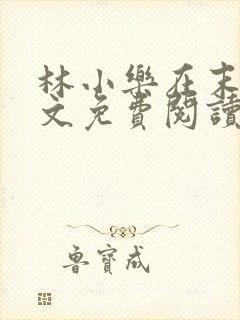 林小樂在末
文免費閱讀
魯寶成